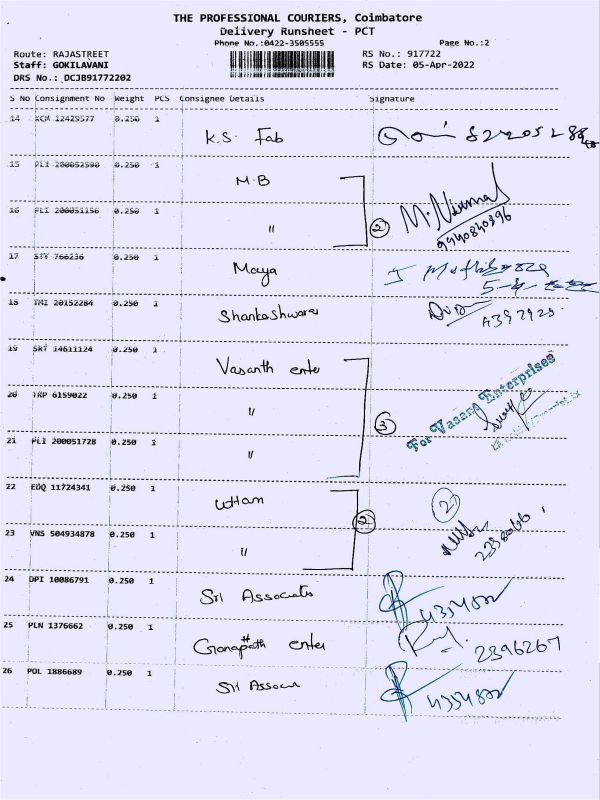 THE PROFESSIONAL COURIERS, Coimbatore
Delivery Runsheet - PCT
Phone No.:0422-3505555 Page No.:2
Route: RAJASTREET RS No.: 917722
Staff: GOKILAVANI RS Date: 05-Apr-2022
DRS No.: DCJB91772202
S No Consignment No Weight PCS Consignee Details Signature
14 KCM 12429577 0.250 1
K.S. Fab
15 PLI 200052590 0.250 1
M.B
16 PLI 200051156 0.250 1
" 2 M. Nirmal
9940840396
17 STY 766236 0.250 1
Maya
18 TMI 20152284 0.250 1
Shankeshwara
19 SRT 14611124 0.250 1
Vasanth enter
20 TRP 6159022 0.250 1
" 3 For Vasant Enterprises
21 PLI 200051728 0.250 1
"
22 EDQ 11724341 0.250 1
uttam 2 2
23 VNS 504934878 0.250 1
" 2398066
24 DPI 10086791 0.250 1
Sri Associates 4354822
25 PLN 1376662 0.250 1
Ganapath enter 2396267
26 POL 1886689 0.250 1
Sri Associa 4354822